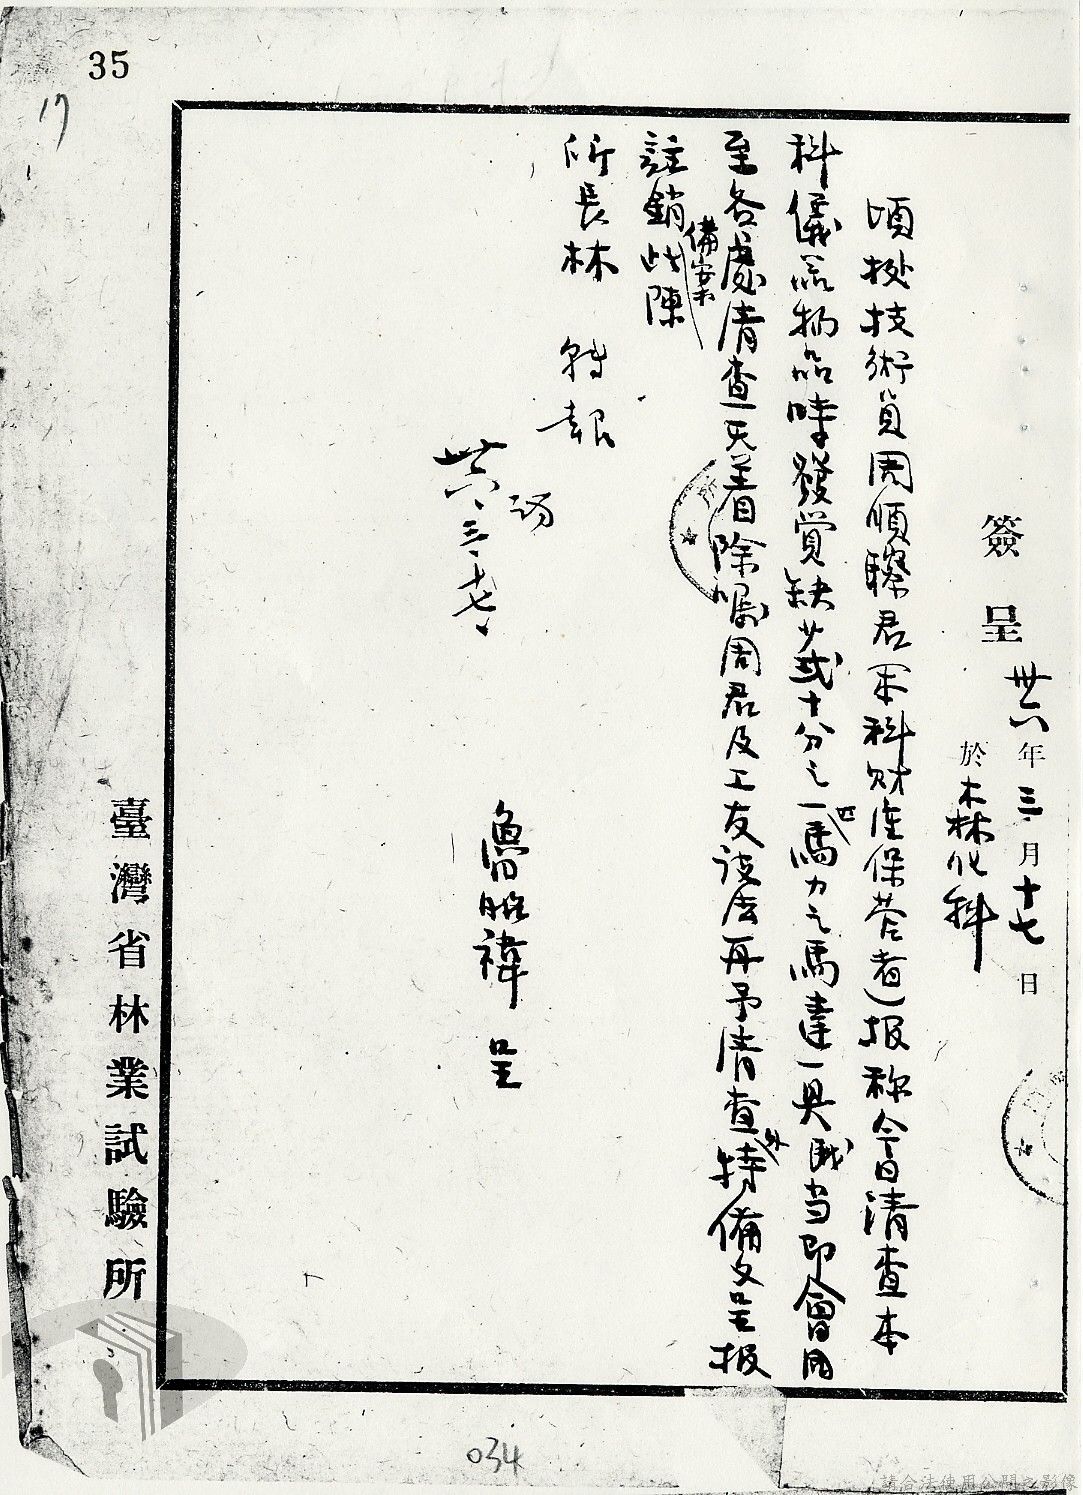 35
17
簽呈 卅六年三月十七日
於森化科
頃挍技術員周順聯君(本科財產保管者)报称今日清查本
科儀器物品時發覚缺少弍十分之一馬力之馬達一具 當即會同
四
至各處清查無着除囑周君及工友設法再予清查外特備文呈报
備案
註銷此陳
所長林 轉報
卅六、三、十七、
魯昭禕 呈
臺灣省林業試驗所
034
請合法使用公開之影像